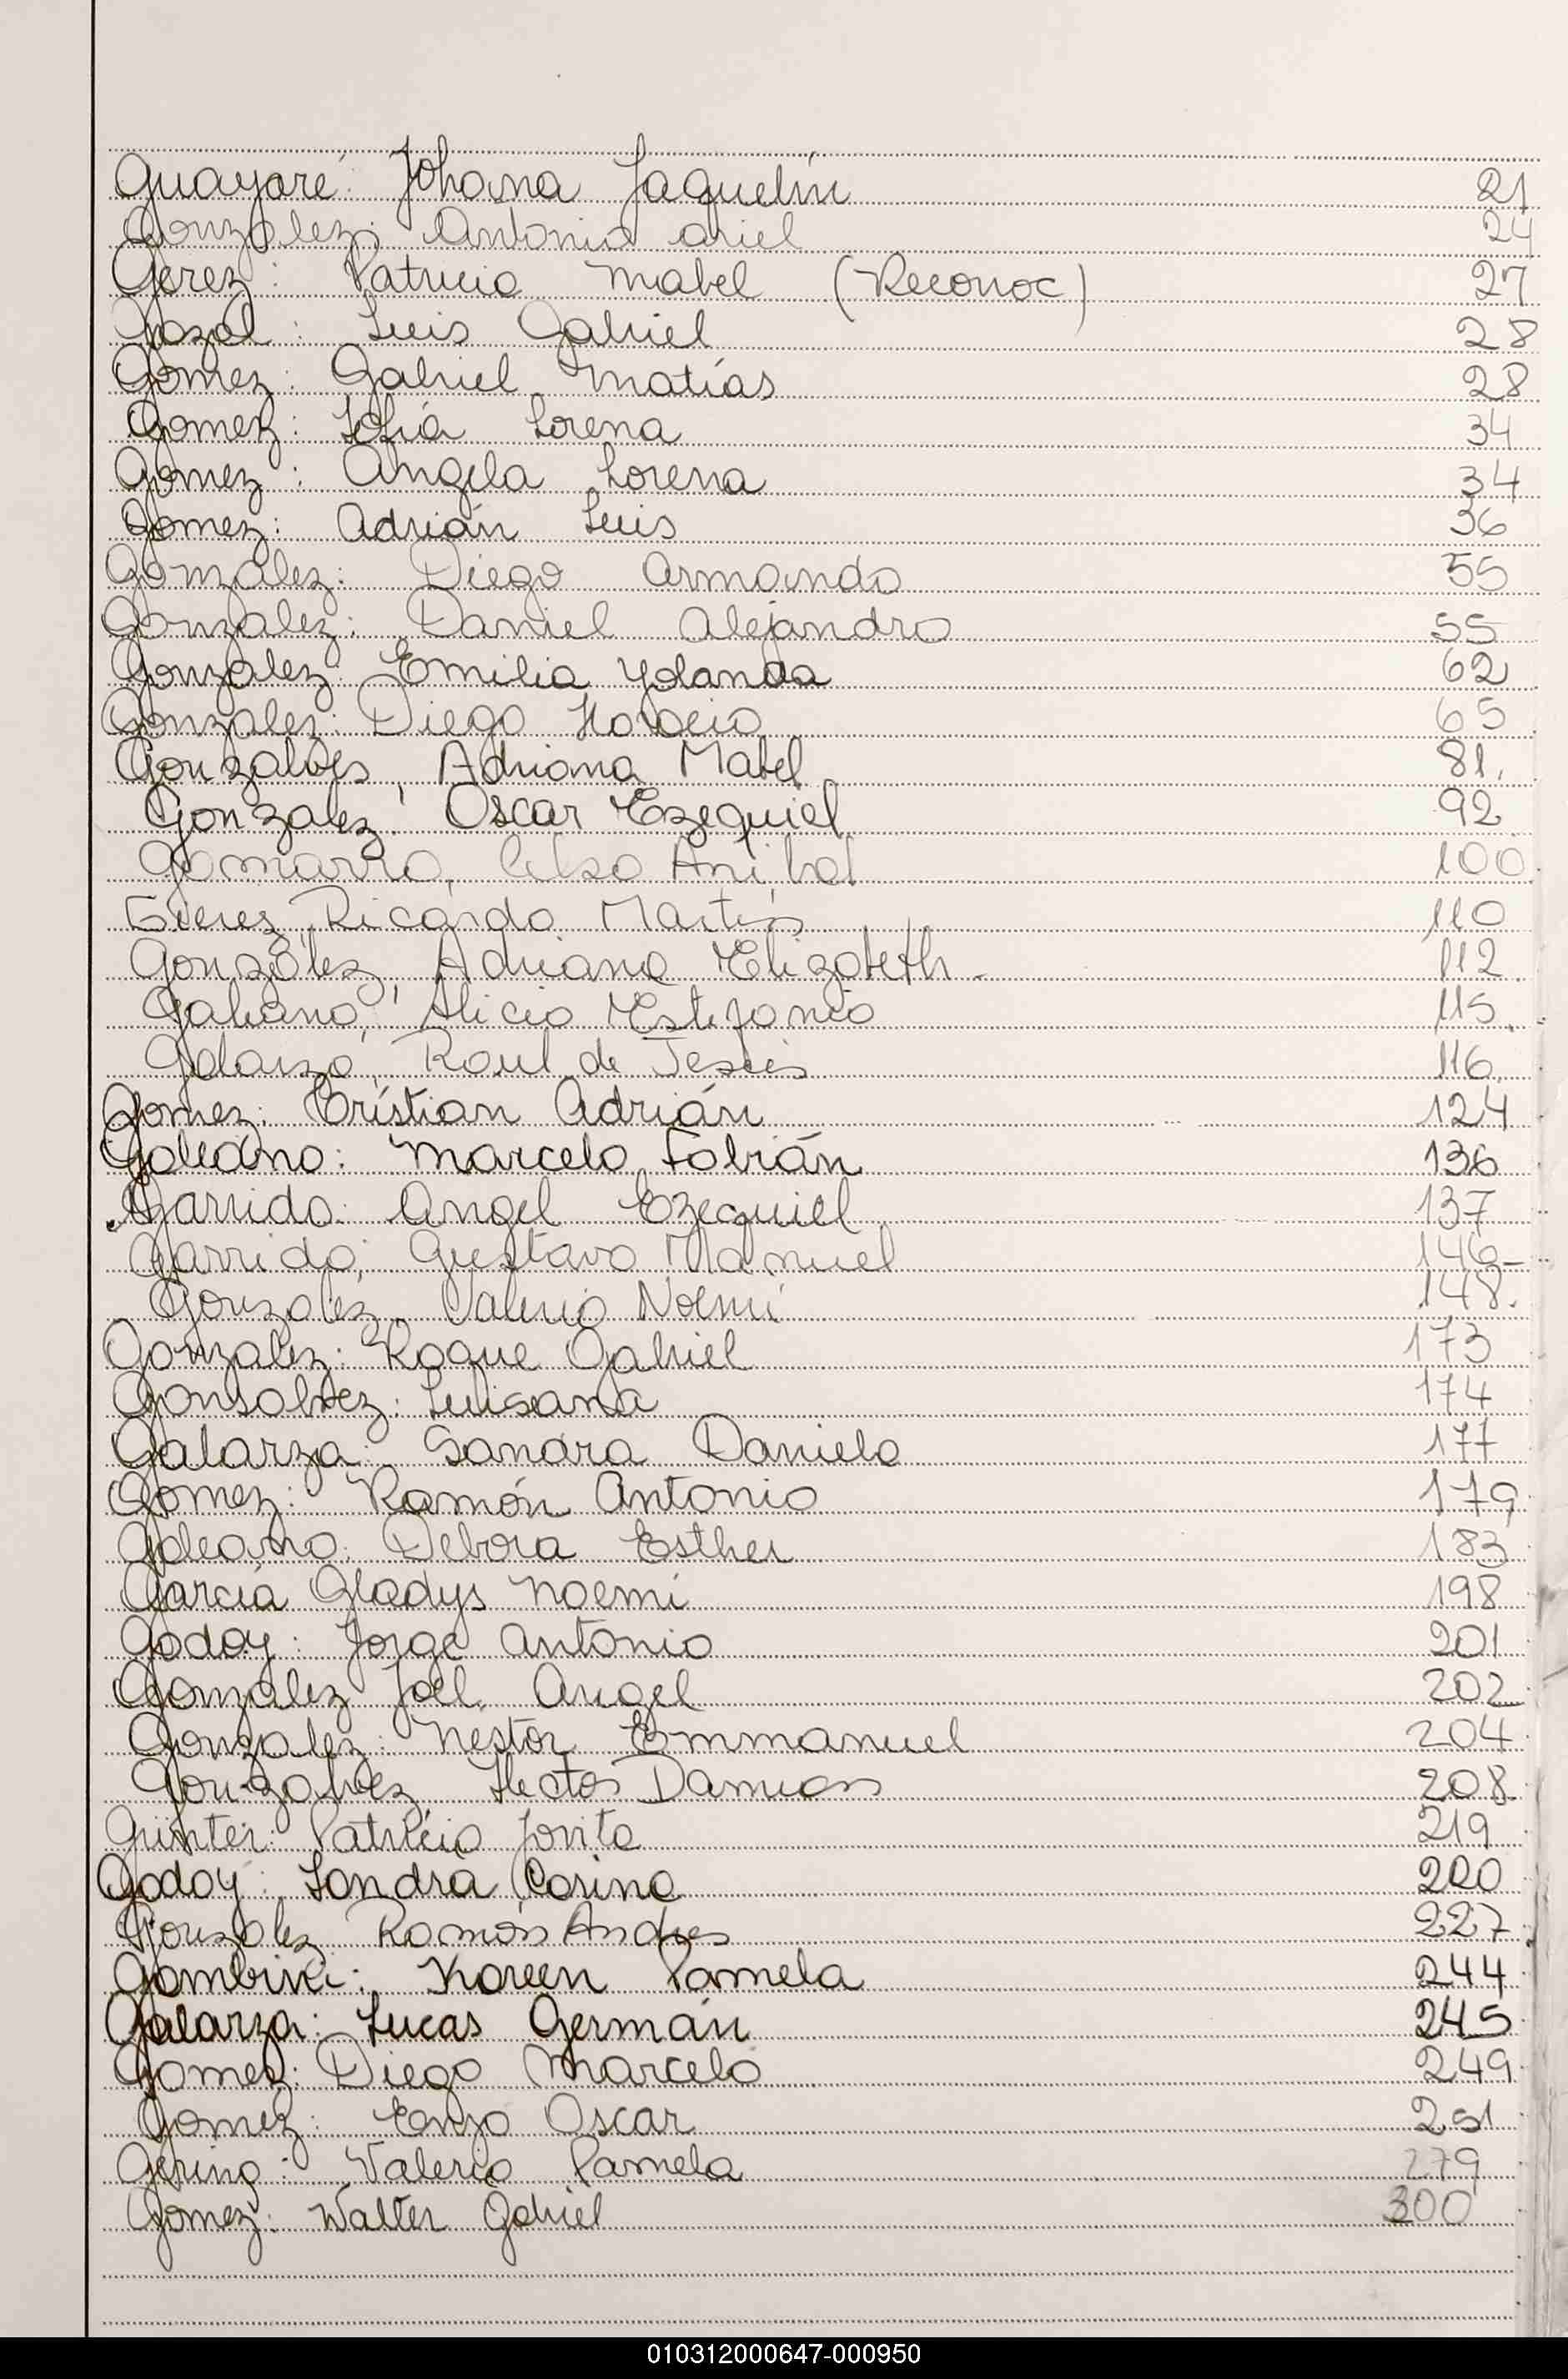 Guayaré: Johana Jaquelin 21
Gonzalez: Antonio ariel 24
Gerez: Patricia mabel (Reconoc) 27
Luis Gabriel 28
Gomez: Gabriel matías 28
Gomez: Sofía Lorena 34
Gomez: Angela Lorena 34
Gomez: Adrián Luis 36
González: Diego Armando 55
Gonzalez: Daniel Alejandro 55
González: Emilia Yolanda 62
Gonzalez: Diego Horacio 65
Gonzalves, Adriana Mabel 81.
Gonzalez, Oscar Ezequiel 92
Gamarra, Celso Anibal 100
Ricardo Martin 110
González, Adriana Elizabeth. 112
Galeano, Alicia Estefania 115.
Galarza, Raul de Jesús 116.
Gomez: Cristian Adrián 124
Galeano: Marcelo Fabián 136
Garrido: Angel Ezequiel 137
Garrido, Gustavo Manuel 146-
Gonzalez, Valeria Noemi 148.
Gonzalez: Roque Gabriel 173
Gonsalvez: Luisana 174
Galarza: Sandra Daniela 177
Gomez: Ramón Antonio 179
Galeano: Debora Esther 183
García Gladys Noemi 198
Godoy: Jorge Antonio 201
Gonzalez Joel Angel 202
Gonzalez: Nestor Emmanuel 204
Gonzalvez Hector Damian 208
Günter: Patricia Jovita 219
Godoy: Sandra Corina 220
Gonzalez Ramón Andres 227
Karen Pamela 244
Galarza: Lucas Germán 245
Gomez: Diego Marcelo 249
Gomez: Enzo Oscar 251
Gerino: Valeria Pamela 279
Gomez: Walter Gabriel 300
010312000647-000950